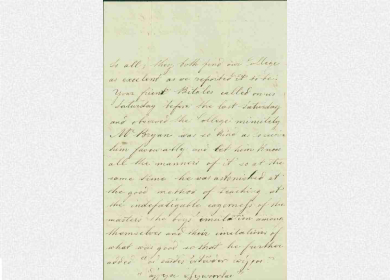 to all; they both find our College
as excellent as we reported it to be.
Your friend called on us
Saturday before the last Saturday
and observed the College minutely
Mr Bryant was so kind as to receive
him favourably and let him know
all the manners of it so at the
same time he was astonished at
the good method of teaching at
the indefatigable eagerness of the
masters the boys emulation among
themselves and their emulation of
what was good so that he further
added